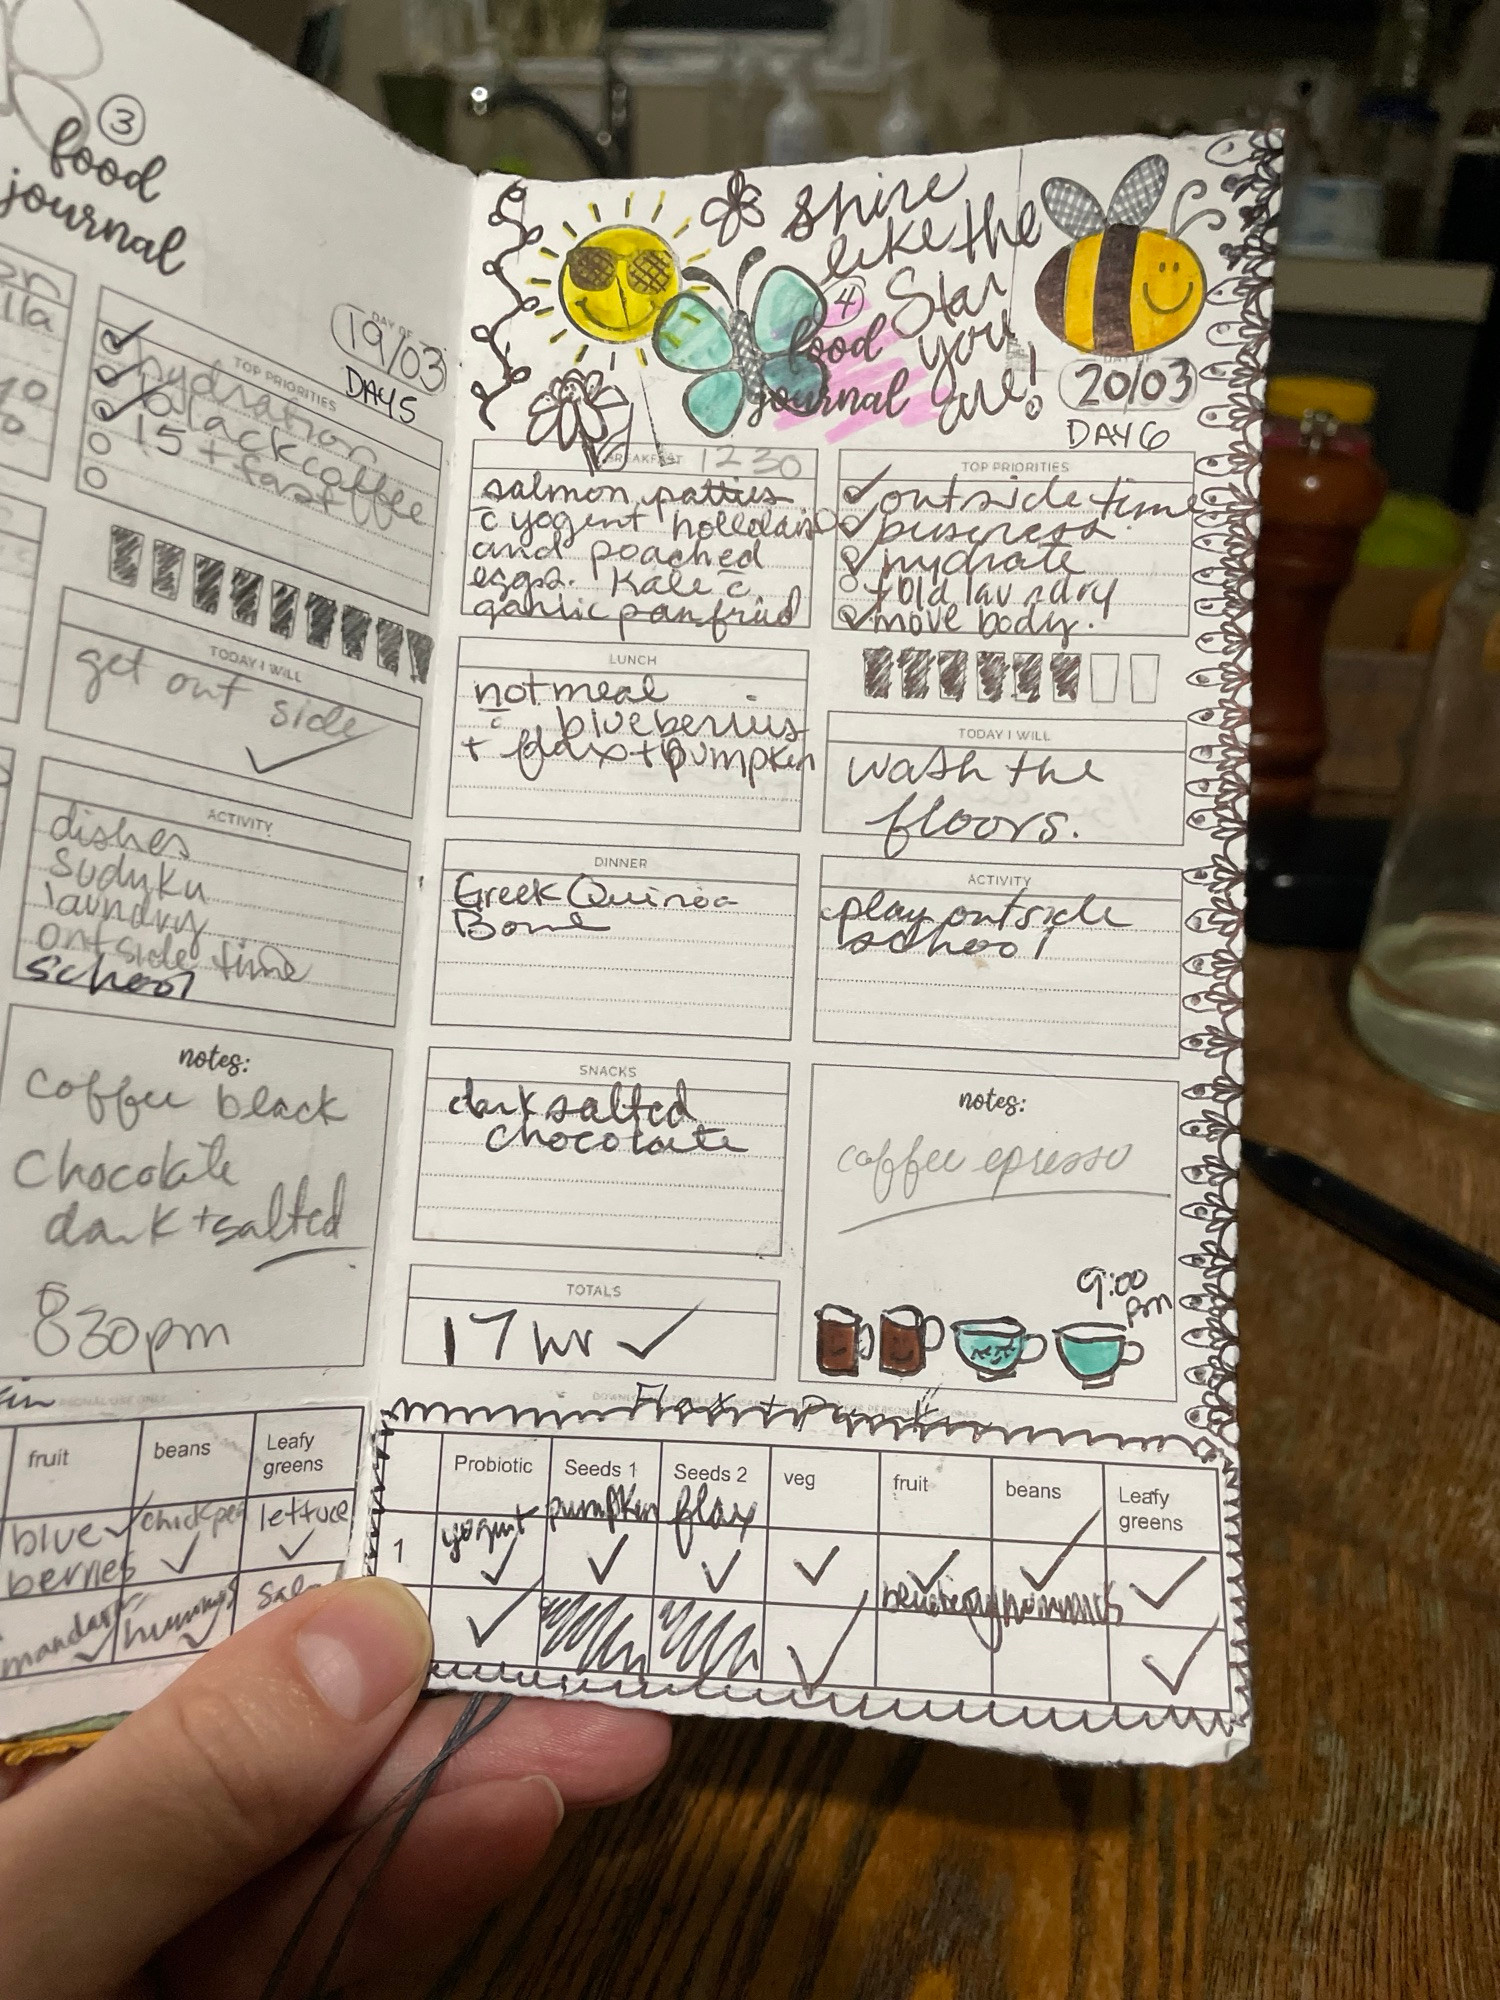 3
food
journal
lla
DAY OF
19/03
DAY 5
TOP PRIORITIES
hydration
black coffee
15 + fast
TODAY I WILL
get out side
ACTIVITY
dishes
sudyku
laundry
outside time
school
notes:
coffee black
chocolate
dark + salted
830pm
fruit
beans
Leafy
greens
blue
berries
chickpea
lettuce
mandarin
hummus
shine
like the
Star
you
are!
4
food
journal
DAY OF
20/03
DAY 6
BREAKFAST 1230
salmon patties
c̄ yogurt holldaise
and poached
eggs. Kale c̄
garlic pan fried
LUNCH
notmeal
c̄ blueberries
+ flax + pumpkin
DINNER
Greek Quinoa
Bowl
SNACKS
dark salted
chocolate
TOTALS
17 hr ✓
TOP PRIORITIES
outside time
business
hydrate
fold laundry
move body.
TODAY I WILL
wash the
floors.
ACTIVITY
play outside
school
notes:
coffee epresso
9:00
pm
Probiotic
Seeds 1
Seeds 2
veg
fruit
beans
Leafy
greens
1
yogurt
pumpkin
flax
blueberry
hummus